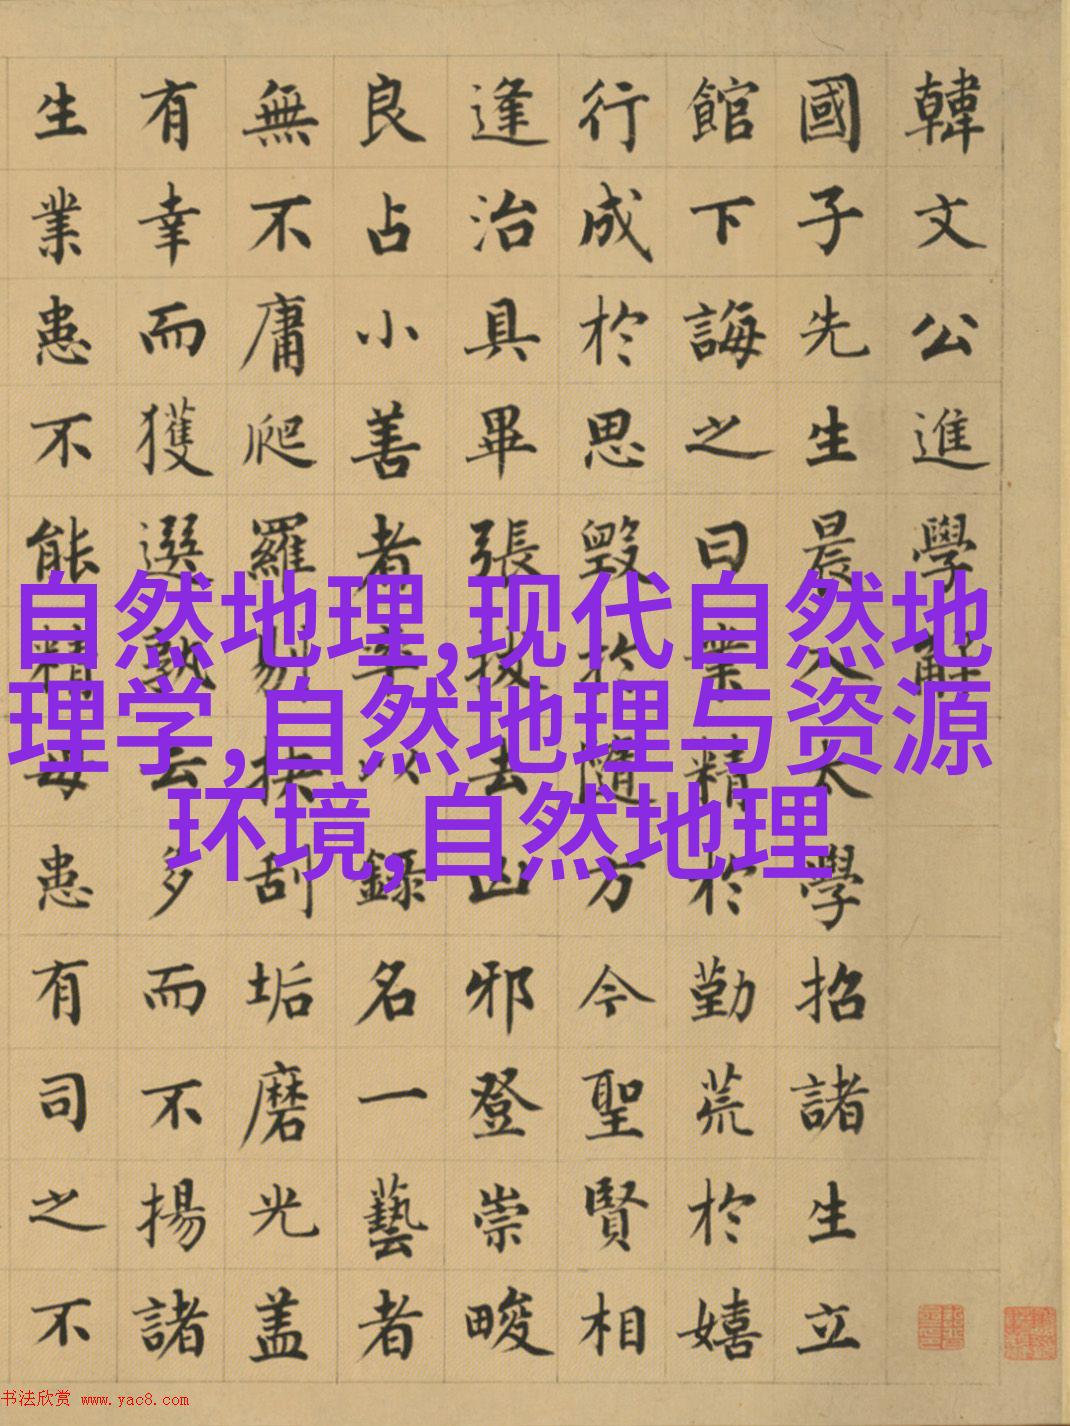 韓文公進學解
國子先生晨入太學招諸生立
館下誨之曰業精於勤荒於嬉
行成於思毀於隨方今聖賢相
逢治具畢張拔去凶邪登崇畯
良占小善者率以錄名一藝者
無不庸爬羅剔抉刮垢磨光盖
有幸而獲選孰云多而不揚諸
生業患不能精毋患有司之不
自然地理,现代自然地
理学,自然地理与资源
环境,自然地理
书法欣赏 www.yac8.com